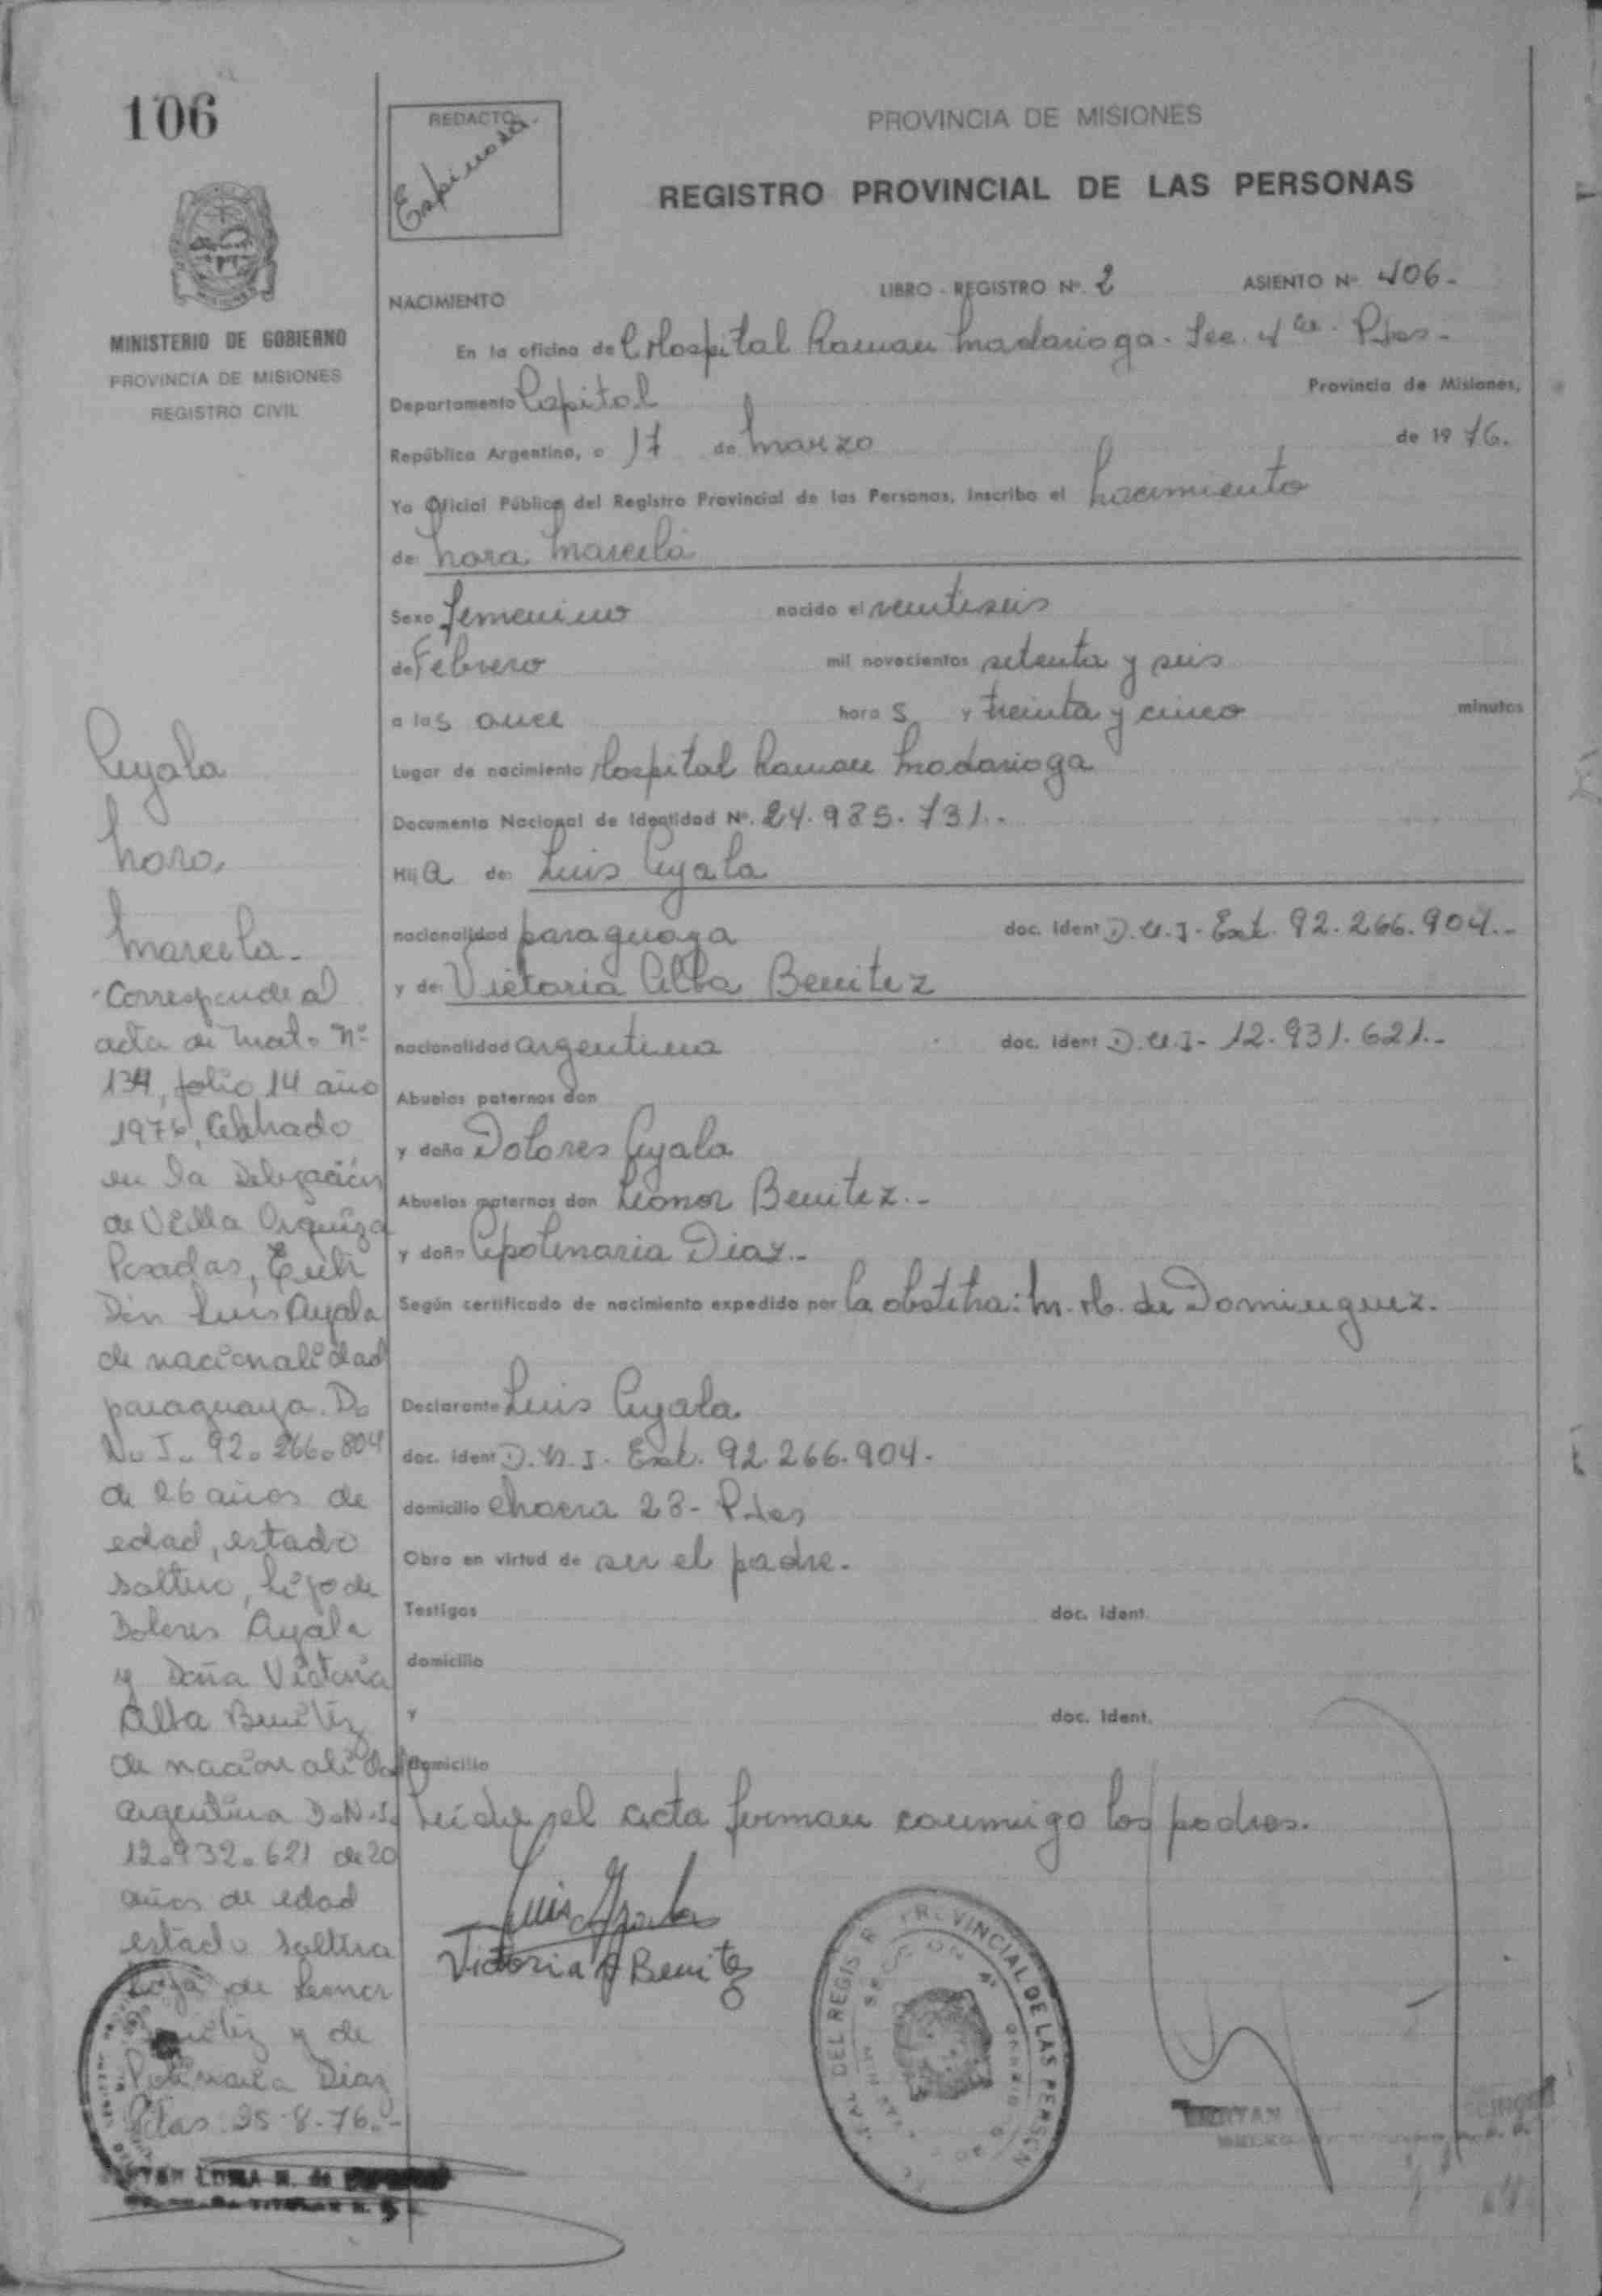 106
REDACTO
Espinosa.
PROVINCIA DE MISIONES
REGISTRO PROVINCIAL DE LAS PERSONAS
MINISTERIO DE GOBIERNO
PROVINCIA DE MISIONES
REGISTRO CIVIL
NACIMIENTO LIBRO - REGISTRO Nº. 2 ASIENTO Nº 406.-
En la oficina de Hospital Ramon Madariaga - Sec. 4ta. Pdas-
Departamento Capital Provincia de Misiones,
República Argentina, a 17 de Marzo de 1976.
Yo Oficial Público del Registro Provincial de las Personas, inscribo el Nacimiento
de: Nora Marcela
Sexo femenino nacido el veintiseis
de Febrero mil novecientos setenta y seis
a las once horas y treinta y cinco minutos
Lugar de nacimiento Hospital Ramon Madariaga
Documento Nacional de Identidad Nº. 24.985.731.-
Hija de: Luis Ayala
nacionalidad paraguaya doc. ident D.N.I- Ext. 92.266.904.-
y de: Victoria Alba Benitez
nacionalidad argentina doc. ident D.N.I- 12.931.621.-
Abuelos paternos don
y doña Dolores Ayala
Abuelos maternos don Leonor Benitez.-
y doña Apolinaria Diaz.-
Según certificado de nacimiento expedido por la obstetra: M. H. de Dominguez.
Declarante Luis Ayala
doc. ident D.N.I. Ext. 92.266.904.
domicilio chacra 28- Pdas
Obra en virtud de ser el padre.
Testigos doc. ident.
domicilio
y doc. ident.
domicilio
Leida el acta firman conmigo los padres.
Luis Ayala
Victoria A Benitez
Ayala
Nora
Marcela-
Corresponde al
acta de Mat. Nº
134, folio 14 año
1976, Celebrado
en la Delegación
de Villa Urquiza
Posadas, Entre
Don Luis Ayala
de nacionalidad
paraguaya. D.
N. I. 92.266.804
de 26 años de
edad, estado
soltero, hijo de
Dolores Ayala
y Doña Victoria
Alba Benitez
de nacionalidad
argentina D.N.I.
12.932.621 de 20
años de edad
estado soltera
hija de Leonor
Benitez y de
Polinaria Diaz
Pdas 25-8-76.-
DEL REGISTR PROVINCIAL DE LAS PERSON
SECCION 4ª